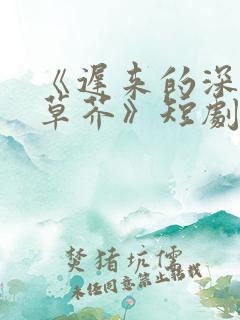 《遲来的深
草芥》短劇
焚猪坑儒
未经同意禁止搬载